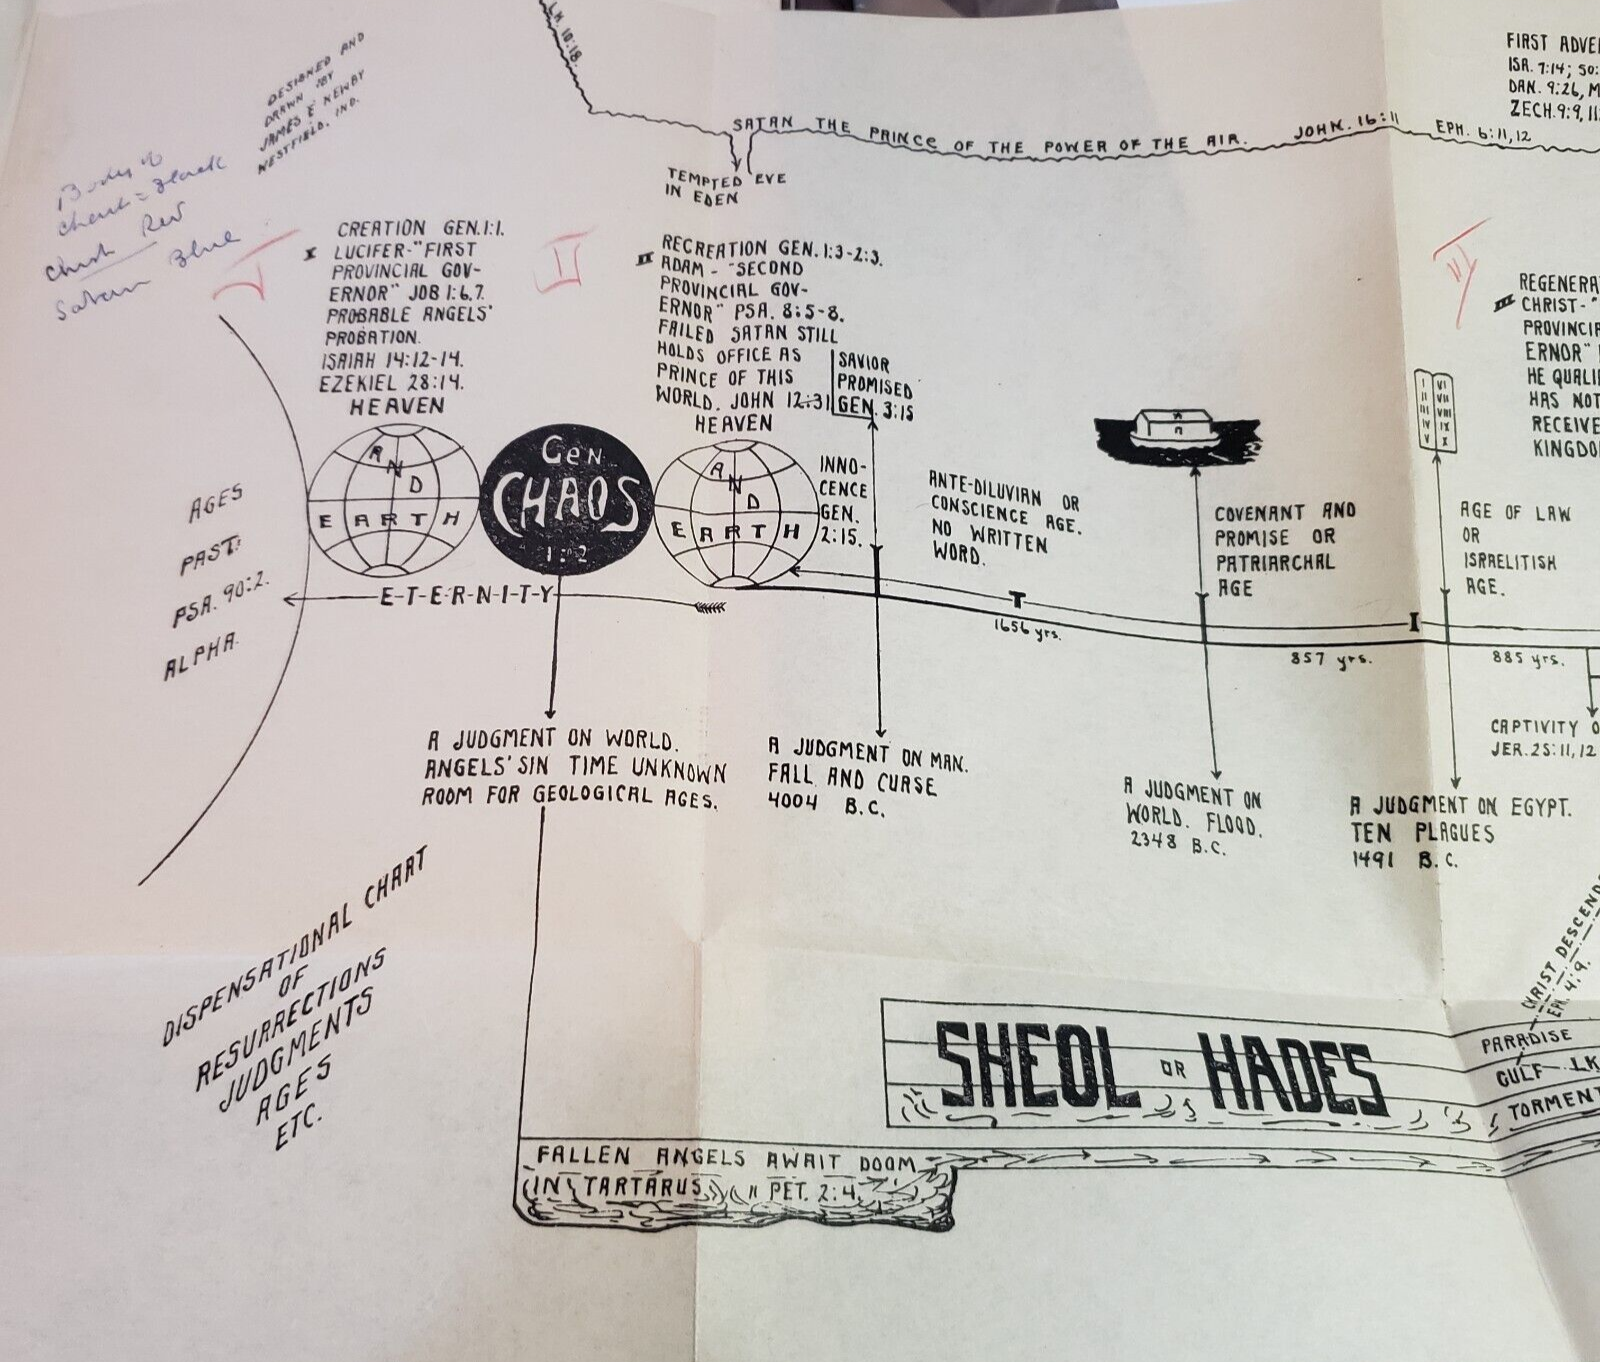 DESIGNED AND
DRAWN BY
JAMES E NEWBY
WESTFIELD, IND.
Body of
chart = Black
Red
Satan Blue
LK. 10:18.
SATAN THE PRINCE OF THE POWER OF THE AIR. JOHN. 16:11 EPH. 6:11,12
TEMPTED EVE
IN EDEN
FIRST ADVE
ISA. 7:14; 50:
DAN. 9:26, M
ZECH. 9:9, 11
I
I CREATION GEN. 1:1.
LUCIFER-"FIRST
PROVINCIAL GOV-
ERNOR" JOB 1:6,7.
PROBABLE ANGELS'
PROBATION.
ISAIAH 14:12-14.
EZEKIEL 28:14.
HEAVEN
AND
EARTH
II
II RECREATION GEN. 1:3-2:3.
ADAM - "SECOND
PROVINCIAL GOV-
ERNOR" PSA. 8:5-8.
FAILED SATAN STILL
HOLDS OFFICE AS
PRINCE OF THIS
WORLD. JOHN 12:31
HEAVEN
AND
EARTH
SAVIOR
PROMISED
GEN. 3:15
III
III REGENERA
CHRIST-"
PROVINCIA
ERNOR"
HE QUALI
HAS NOT
RECEIVE
KINGDO
I VI
II VII
III VIII
IV IX
V X
GEN
CHAOS
1:2
INNO-
CENCE
GEN.
2:15.
ANTE-DILUVIAN OR
CONSCIENCE AGE.
NO WRITTEN
WORD.
COVENANT AND
PROMISE OR
PATRIARCHAL
AGE
AGE OF LAW
OR
ISRAELITISH
AGE.
AGES
PAST.
PSA. 90:2.
ALPHA.
E-T-E-R-N-I-T-Y
T
I
1656 yrs.
857 yrs.
885 yrs.
A JUDGMENT ON WORLD.
ANGELS' SIN TIME UNKNOWN
ROOM FOR GEOLOGICAL AGES.
A JUDGMENT ON MAN.
FALL AND CURSE
4004 B.C.
A JUDGMENT ON
WORLD. FLOOD.
2348 B.C.
A JUDGMENT ON EGYPT.
TEN PLAGUES
1491 B.C.
CAPTIVITY O
JER. 25:11,12
DISPENSATIONAL CHART
OF
RESURRECTIONS
JUDGMENTS
AGES
ETC.
CHRIST DESCEND
EPH. 4:9.
SHEOL OR HADES
PARADISE
GULF LK
TORMENT
FALLEN ANGELS AWAIT DOOM
IN TARTARUS II PET. 2:4.